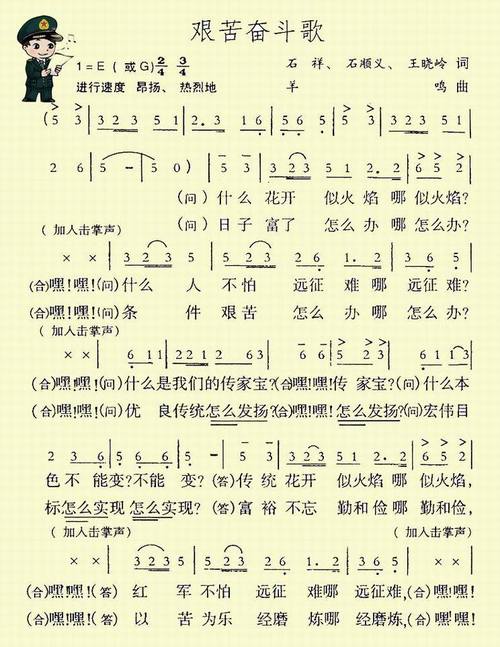 艰苦奋斗歌
1=E(或G)2/4 3/4 石祥、石顺义、王晓岭 词
进行速度 昂扬、热烈地 羊鸣 曲
(5 3 | 3 2 3 5 1 | 2. 3 1 6 | 5 6 5 | 5 1 2 3 |
2 6 | 5 - | 5 0) | 5 3 | 3 2 3 5 1 | 2. 2 | 6 5 3 |
(问)什么 花开 似火焰 哪 似火焰?
(问)日子 富了 怎么办 哪 怎么办?
(加入击掌声)
× × | 3 2 3 5 | 5 2 3 | 2 6 | 1. 2 | 3 6 5 |
(合)嘿!嘿!(问)什么 人 不怕 远征 难哪 远征难?
(合)嘿!嘿!(问)条 件 艰苦 怎么 办哪 怎么办?
(加入击掌声)
× × | 6 1 1 | 2 2 1 2 6 3 | 5 2 3 | 6 1 5 6 |
(合)嘿!嘿!(问)什么是我们的传家宝?(合)嘿!嘿!传 家宝?(问)什么本
(合)嘿!嘿!(问)优 良传统怎么发扬?(合)嘿!嘿!怎么发扬?(问)宏伟目
2 3 6 | 5 6 2 | 5 - | 5 3 | 3 2 3 5 1 | 2. 2 | 6 5 3 |
色不能变?不能 变?(答)传统 花开 似火焰 哪 似火焰,
标怎么实现 怎么实现?(答)富裕 不忘 勤和俭 哪 勤和俭,
(加入击掌声) (加入击掌声)
× × | 3 2 3 5 | 5 2 3 | 2 6 | 1. 2 | 3 2 6 1 | × × |
(合)嘿!嘿!(答)红 军 不怕 远征 难哪 远征难,(合)嘿!嘿!
(合)嘿!嘿!(答)以 苦 为乐 经磨 炼哪 经磨炼,(合)嘿!嘿!